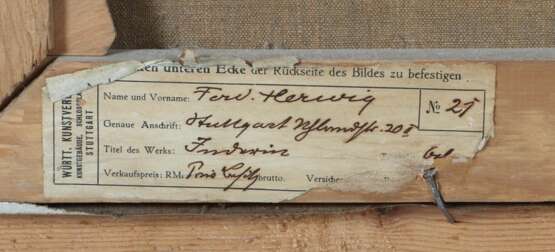 unteren Ecke der Rückseite des Bildes zu befestigen
WÜRTT. KUNSTVER
KUNSTGEBÄUDE, SCHLOSSPLA
STUTTGART
Name und Vorname: Ferd. Herwig
No 25
Genaue Anschrift: Stuttgart Uhlandstr. 20
Titel des Werks: Inderin
Verkaufspreis: RM: brutto. Versiche